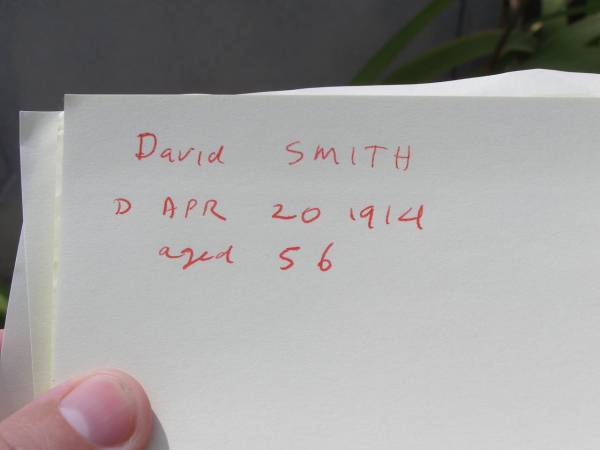 David SMITH
D APR 20 1914
aged 56